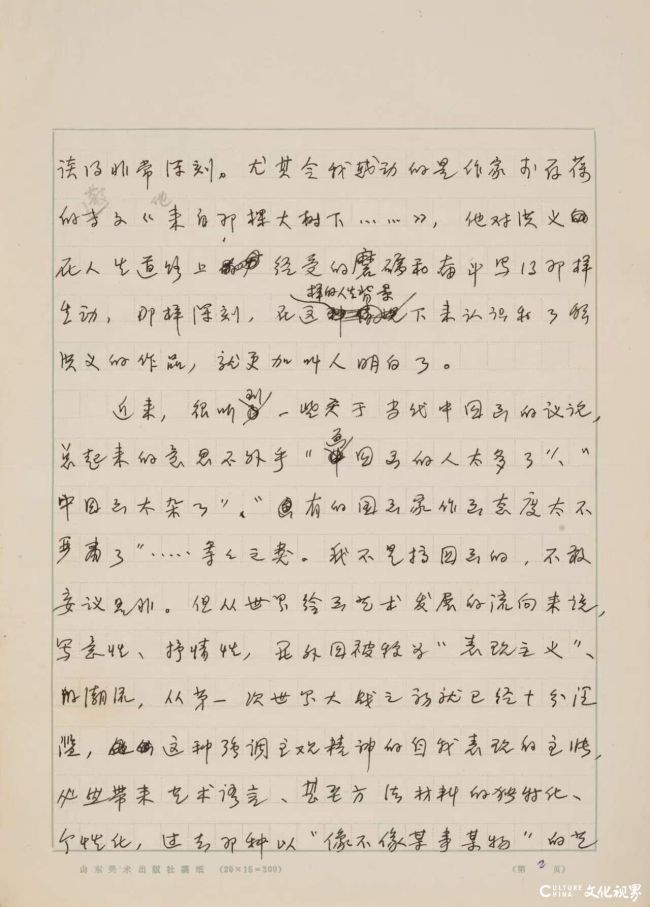 谈得非常深刻。尤其令我感动的是作家于存荷
的专文《来自那棵大树下……》，他对洪义
在人生道路上经受的磨砺和奋斗写得那样
生动，那样深刻，在这样的人生背景下来认识和了解
洪义的作品，就更加叫人明白了。
近来，很听到一些关于当代中国画的议论，
总起来的意思不外乎“画国画的人太多了”、“
中国画太杂了”、“有的国画家作画态度太不
严肃了”……等等之类。我不是搞国画的，不敢
妄议是非。但从世界绘画艺术发展的流向来说，
写意性、抒情性，在外国被称为“表现主义”、
的潮流，从第一次世界大战之前就已经十分泛
滥，这种强调主观精神的自我表现的主张，
必然带来艺术语言、甚至方法材料的独特化、
个性化，过去那种以“像不像某事某物”的艺
山东美术出版社稿纸 （20×15=300）
（第 2 页）
CULTURE CHINA 文化视界